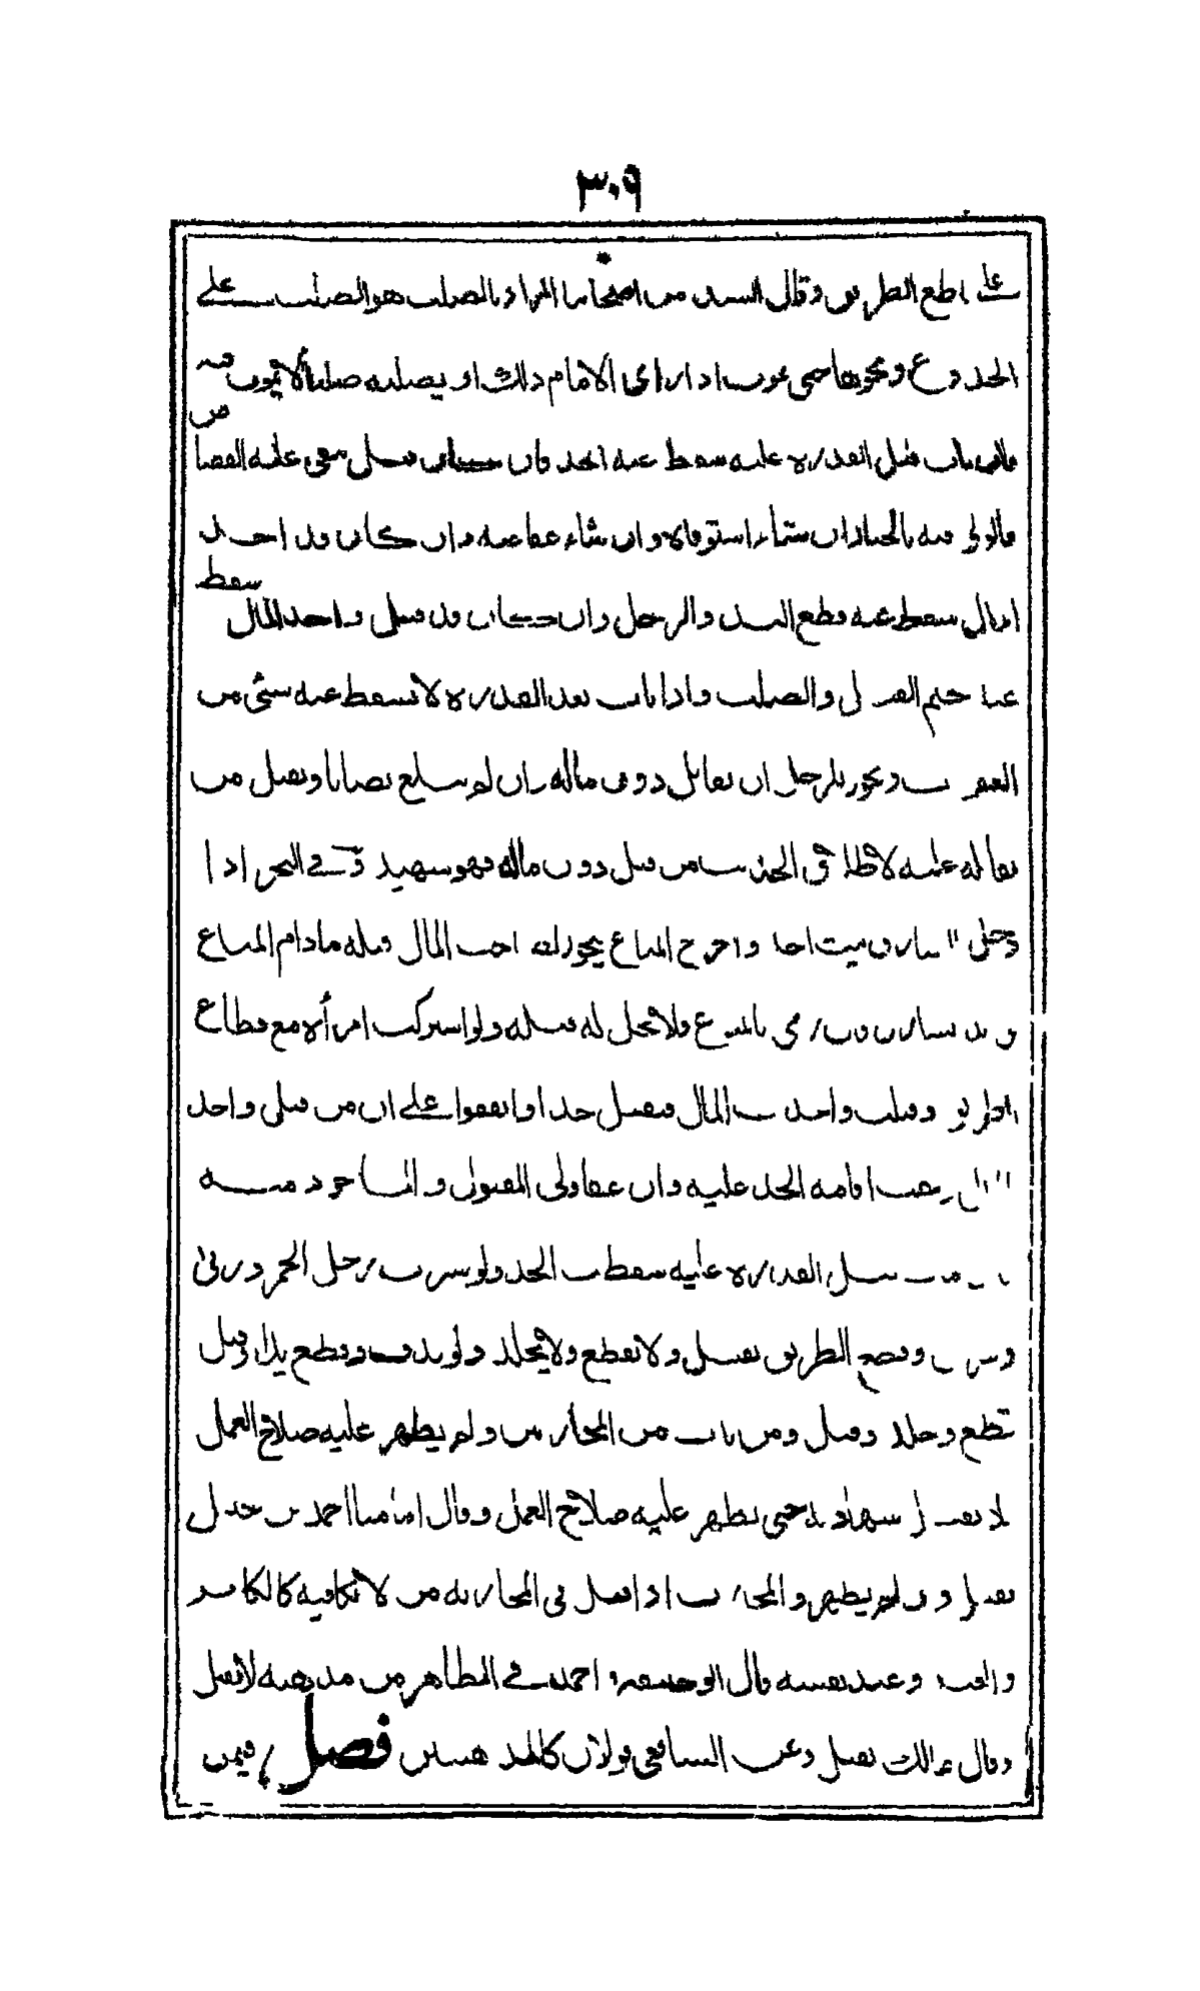 ٣٠٩
على قاطع الطريق وقال السيد من اصحابنا المراد بالصلب هو الصلب على
الجذوع ونحوها حتى يموت اذا راى الامام ذلك او يصلبه صلبا لا يموت فيه
فان تاب قبل القدرة عليه سقط عنه الحد فان كان قتل بقي عليه القصاص
فالولي فيه بالخيار ان شاء استوفاه وان شاء عفا عنه وان كان قد اخذ
المال سقط عنه قطع اليد والرجل وان كان قد قتل واخذ المال سقط
عنه حتم القتل والصلب واذا تاب بعد القدرة لا تسقط عنه شئ من
ويجوز للرجل ان يقاتل دون ماله وان لم يبلغ نصابا ويقتل من
يقاتله عليه لاطلاق الحديث من قتل دون ماله فهو شهيد وفي البحر اذا
دخل السارق بيت احد واخرج المتاع يجوز له اخذ المال قتله ما دام المتاع
رمى بالمتاع فلا يحل له قتله ولو اشتركت امرأة مع قطاع
الطريق وقتلت واخذت المال فتقتل حدا واتفقوا على ان من قتل واخذ
المال يجب اقامة الحد عليه وان عفا ولي المقتول والماخوذ منه
قبل القدرة عليه سقط الحد ولو شرب رجل الخمر وزنى
وسرق وقطع الطريق يقتل ولا يقطع ولا يجلد
قطع وجلد وقتل ومن تاب من المحاربين ولم يظهر عليه صلاح العمل
لا تقبل شهادته حتى يظهر عليه صلاح العمل وقال امامنا احمد بن حنبل
تقبل وان لم يظهر والمحارب اذا قتل في المحاربة من لا يكافيه كالكافر
والعبد وعبد نفسه قال ابو حنيفة واحمد في الظاهر من مذهبه لا يقتل
وقال مالك يقتل وعن الشافعي قولان كالمذهبين فصل فيمن